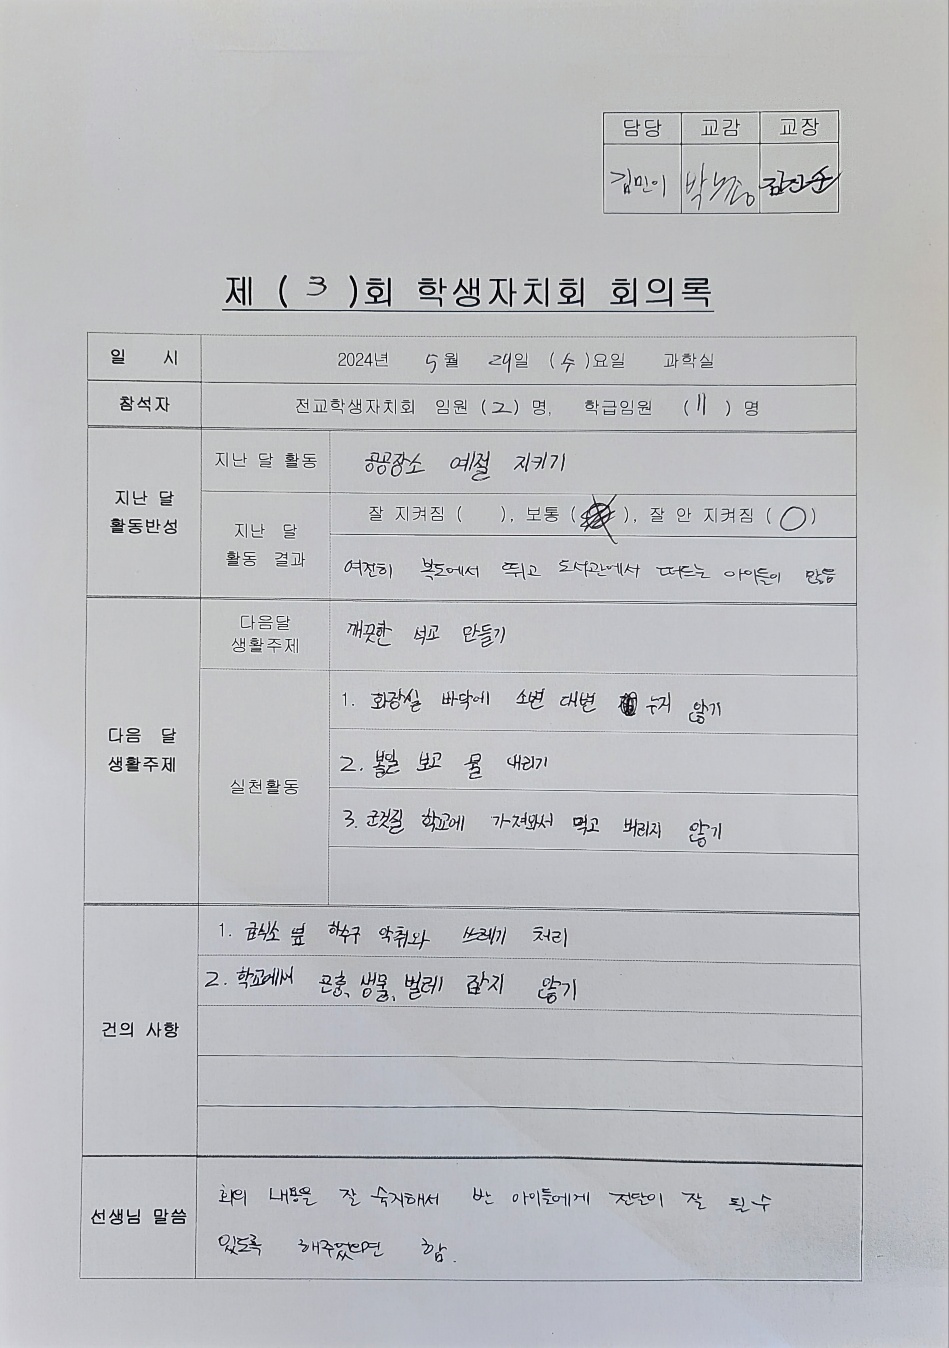 담당 교감 교장
김민이 박
제 ( 3 )회 학생자치회 회의록
일 시 2024년 5월 29일 (수)요일 과학실
참석자 전교학생자치회 임원 (2) 명, 학급임원 (11) 명
지난 달 활동반성
지난 달 활동 공공장소 예절 지키기
지난 달 활동 결과
잘 지켜짐 ( ), 보통 ( ), 잘 안 지켜짐 (○)
여전히 복도에서 뛰고 도서관에서 떠드는 아이들이 많음
다음 달 생활주제
다음달 생활주제 깨끗한 석교 만들기
실천활동
1. 화장실 바닥에 소변 대변 누지 않기
2. 볼일 보고 물 내리기
3. 군것질 학교에 가져와서 먹고 버리지 않기
건의 사항
1. 급식소 옆 하수구 악취와 쓰레기 처리
2. 학교에서 곤충, 생물, 벌레 잡지 않기
선생님 말씀
회의 내용을 잘 숙지해서 반 아이들에게 전달이 잘 될 수
있도록 해주었으면 함.